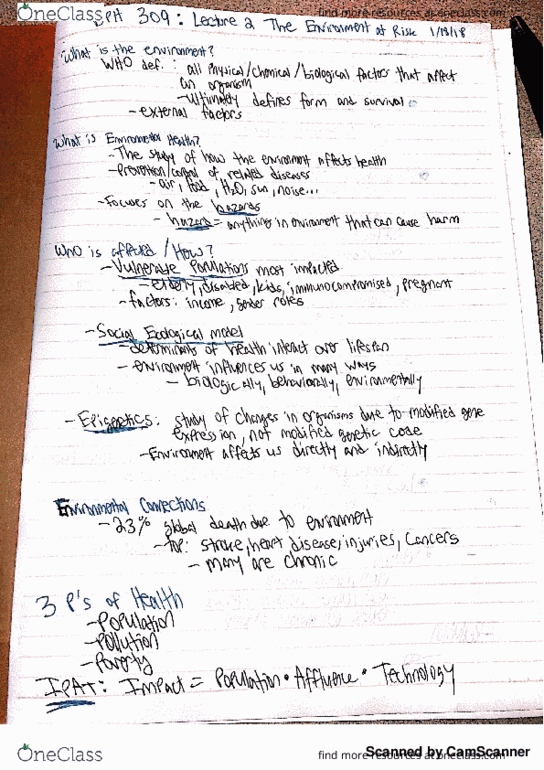 OneClass
find more resources at oneclass.com
SPH 309: Lecture 2 The Environment at Risk 1/18/18
What is the environment?
WHO def. : all Physical/Chemical/biological factors that affect
an organism
-Ultimately defines form and survival
- external factors
What is Environmental Health?
- The study of how the environment affects health
- Prevention/control of related diseases
- air, food, H2O, sun, noise...
- Focuses on the hazards
- hazard = anything in enviroment that can cause harm
Who is affected / How?
- Vulnerable Populations most impacted
- elderly, disabled, kids, immunocompromised, pregnant
- factors: income, gender roles
- Social Ecological model
- determinants of health interact over lifespan
- environment influences us in many ways
- biologically, behaviorally, environmentally
- Epigenetics: study of changes in organisms due to modified gene
expression, not modified genetic code
- Environment affects us directly and indirectly
Environmental Connections
- 23% global death due to environment
- TOP: stroke, heart disease, injuries, cancers
- many are chronic
3 P's of Health
- Population
- Pollution
- Poverty
IPAT: Impact = Population • Affluence • Technology
OneClass
find more resources at oneclass.com
Scanned by CamScanner